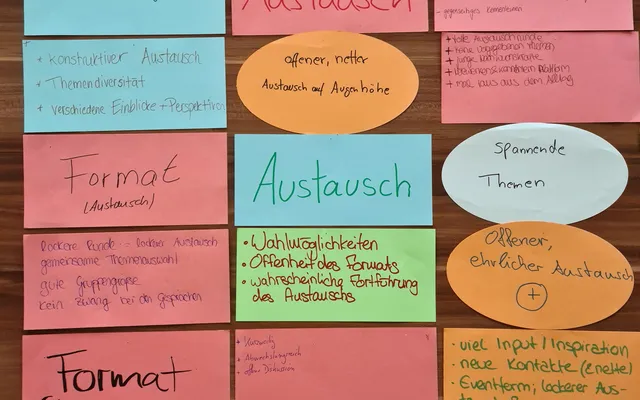 Austausch
- gegenseitiges Kennenlernen
+ konstruktiver Austausch
+ Themendiversität
+ verschiedene Einblicke + Perspektiven
offener, netter
Austausch auf Augenhöhe
+ tolle Austauschrunde
+ keine vorgegebenen Themen
+ mal raus aus dem Alltag
Format
(Austausch)
Austausch
Spannende
Themen
lockere Runde -> lockerer Austausch
gemeinsame Themenauswahl
gute Gruppengröße
kein Zwang bei den Gesprächen
• Wahlmöglichkeiten
• Offenheit des Formats
• wahrscheinliche Fortführung
des Austauschs
Offener,
ehrlicher Austausch
+
Format
+ Kurzweilig
+ Abwechslungsreich
+ offene Diskussion
• viel Input / Inspiration
• neue Kontakte (& nette)
• Eventform; lockerer Aus-